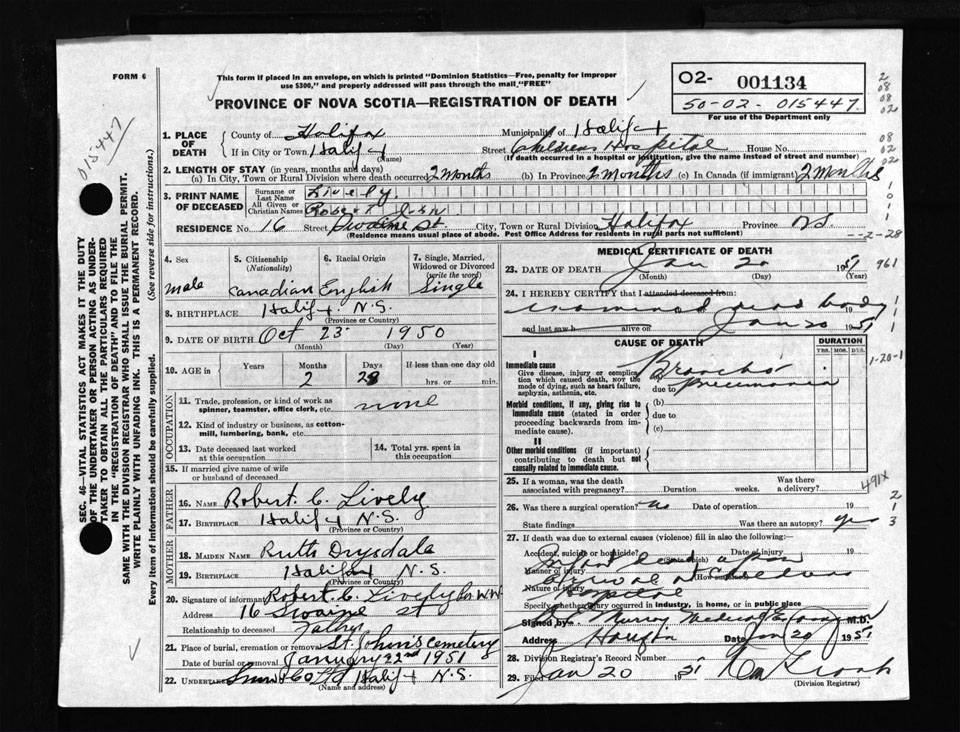 FORM 6
This form if placed in an envelope, on which is printed "Dominion Statistics—Free, penalty for improper
use $300," and properly addressed will pass through the mail, "FREE"
PROVINCE OF NOVA SCOTIA—REGISTRATION OF DEATH
O2- 001134
50-02-015447
For use of the Department only
015447
SEC. 46—VITAL STATISTICS ACT MAKES IT THE DUTY
OF THE UNDERTAKER OR PERSON ACTING AS UNDER-
TAKER TO OBTAIN ALL THE PARTICULARS REQUIRED
IN THE "REGISTRATION OF DEATH" AND TO FILE THE
SAME WITH THE DIVISION REGISTRAR WHO SHALL ISSUE THE BURIAL PERMIT.
WRITE PLAINLY WITH UNFADING INK. THIS IS A PERMANENT RECORD.
Every item of information should be carefully supplied. (See reverse side for instructions.)
1. PLACE OF DEATH
County of Halifax Municipality of Halifax
If in City or Town Halifax (Name) Street Childrens Hospital House No.
(If death occurred in a hospital or institution, give the name instead of street and number)
2. LENGTH OF STAY (in years, months and days)
(a) In City, Town or Rural Division where death occurred 2 Months (b) In Province 2 months (c) In Canada (if immigrant) 2 Months
3. PRINT NAME OF DECEASED
Surname or Last Name Lively,
All Given or Christian Names Robert John
RESIDENCE No. 16 Street Swaine St. City, Town or Rural Division Halifax Province N.S.
(Residence means usual place of abode. Post Office Address for residents in rural parts not sufficient)
4. Sex male
5. Citizenship (Nationality) Canadian
6. Racial Origin English
7. Single, Married, Widowed or Divorced (write the word) Single
8. BIRTHPLACE Halifax N.S.
(Province or Country)
9. DATE OF BIRTH Oct 23 1950
(Month) (Day) (Year)
10. AGE in Years Months 2 Days 28 If less than one day old hrs. or min.
OCCUPATION
11. Trade, profession, or kind of work as
spinner, teamster, office clerk, etc. none
12. Kind of industry or business, as cotton-
mill, lumbering, bank, etc.
13. Date deceased last worked
at this occupation
14. Total yrs. spent in
this occupation
15. If married give name of wife
or husband of deceased
FATHER
16. NAME Robert C. Lively
17. BIRTHPLACE Halifax N.S.
(Province or Country)
MOTHER
18. MAIDEN NAME Ruth Drysdale
19. BIRTHPLACE Halifax N.S.
(Province or Country)
20. Signature of informant Robert C. Lively per W.W.
Address 16 Swaine St
Relationship to deceased Father
21. Place of burial, cremation or removal St. John's cemetery
Date of burial or removal January 22nd 1951
22. UNDERTAKER Snow & Co Ltd Halifax N.S.
(Name and address)
MEDICAL CERTIFICATE OF DEATH
23. DATE OF DEATH Jan 20 1951
(Month) (Day)
24. I HEREBY CERTIFY that I attended deceased from:
examined dead body 19
and last saw h alive on Jan 20 1951
CAUSE OF DEATH
DURATION
YRS. MOS. DYS.
I
Immediate cause
Give disease, injury or complica-
tion which caused death, NOT the
mode of dying, such as heart failure,
asphyxia, asthenia, etc.
(a) Broncho
due to pneumonia
Morbid conditions, if any, giving rise to
immediate cause (stated in order
proceeding backwards from im-
mediate cause).
(b)
due to
(c)
II
Other morbid conditions (if important)
contributing to death but not
causally related to immediate cause.
25. If a woman, was the death
associated with pregnancy? Duration weeks. Was there
a delivery?
26. Was there a surgical operation? no Date of operation 19
State findings Was there an autopsy? yes
27. If death was due to external causes (violence) fill in also the following:
Accident, suicide or homicide? Date of injury 19
(State which)
Manner of injury
(How sustained)
Nature of injury
Infant dead upon
arrival at Childrens
Hospital
Specify whether injury occurred in industry, in home, or in public place
Signed by Murray Medical Examiner M.D.
Address Date Jan 20 1951
28. Division Registrar's Record Number
29. Filed Jan 20 1951
(Division Registrar)
2
08
08
02
08
02
02
1
0
1
1
--2-28
961
1
1
1-20-1
491X
2
1
3